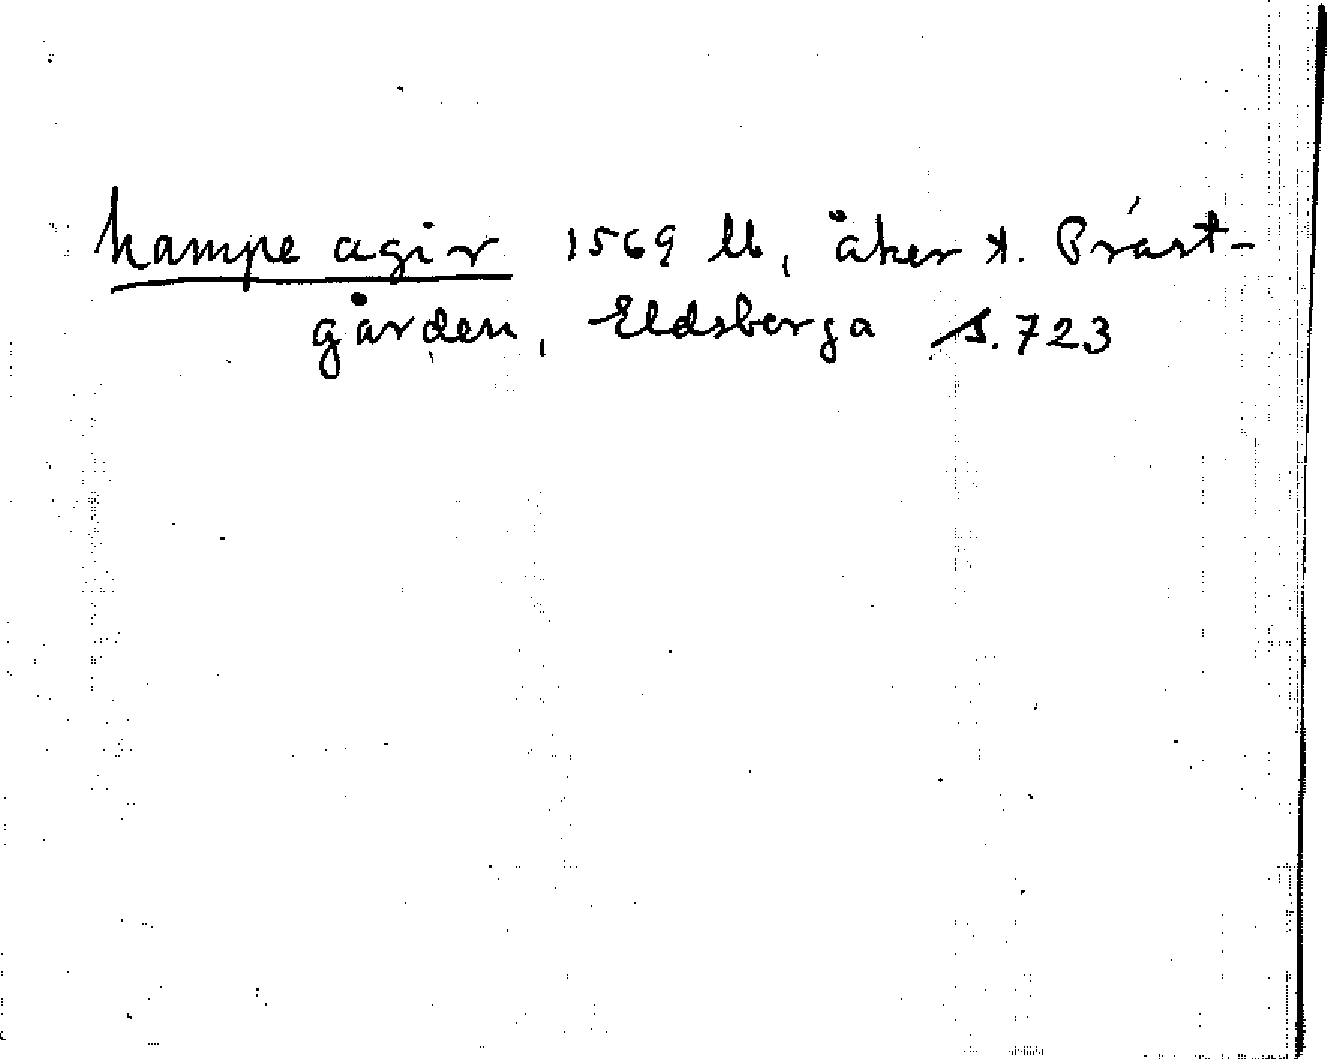 hampe agir 1569 lb, åker t. Präst-
gården, Eldsberga s. 723